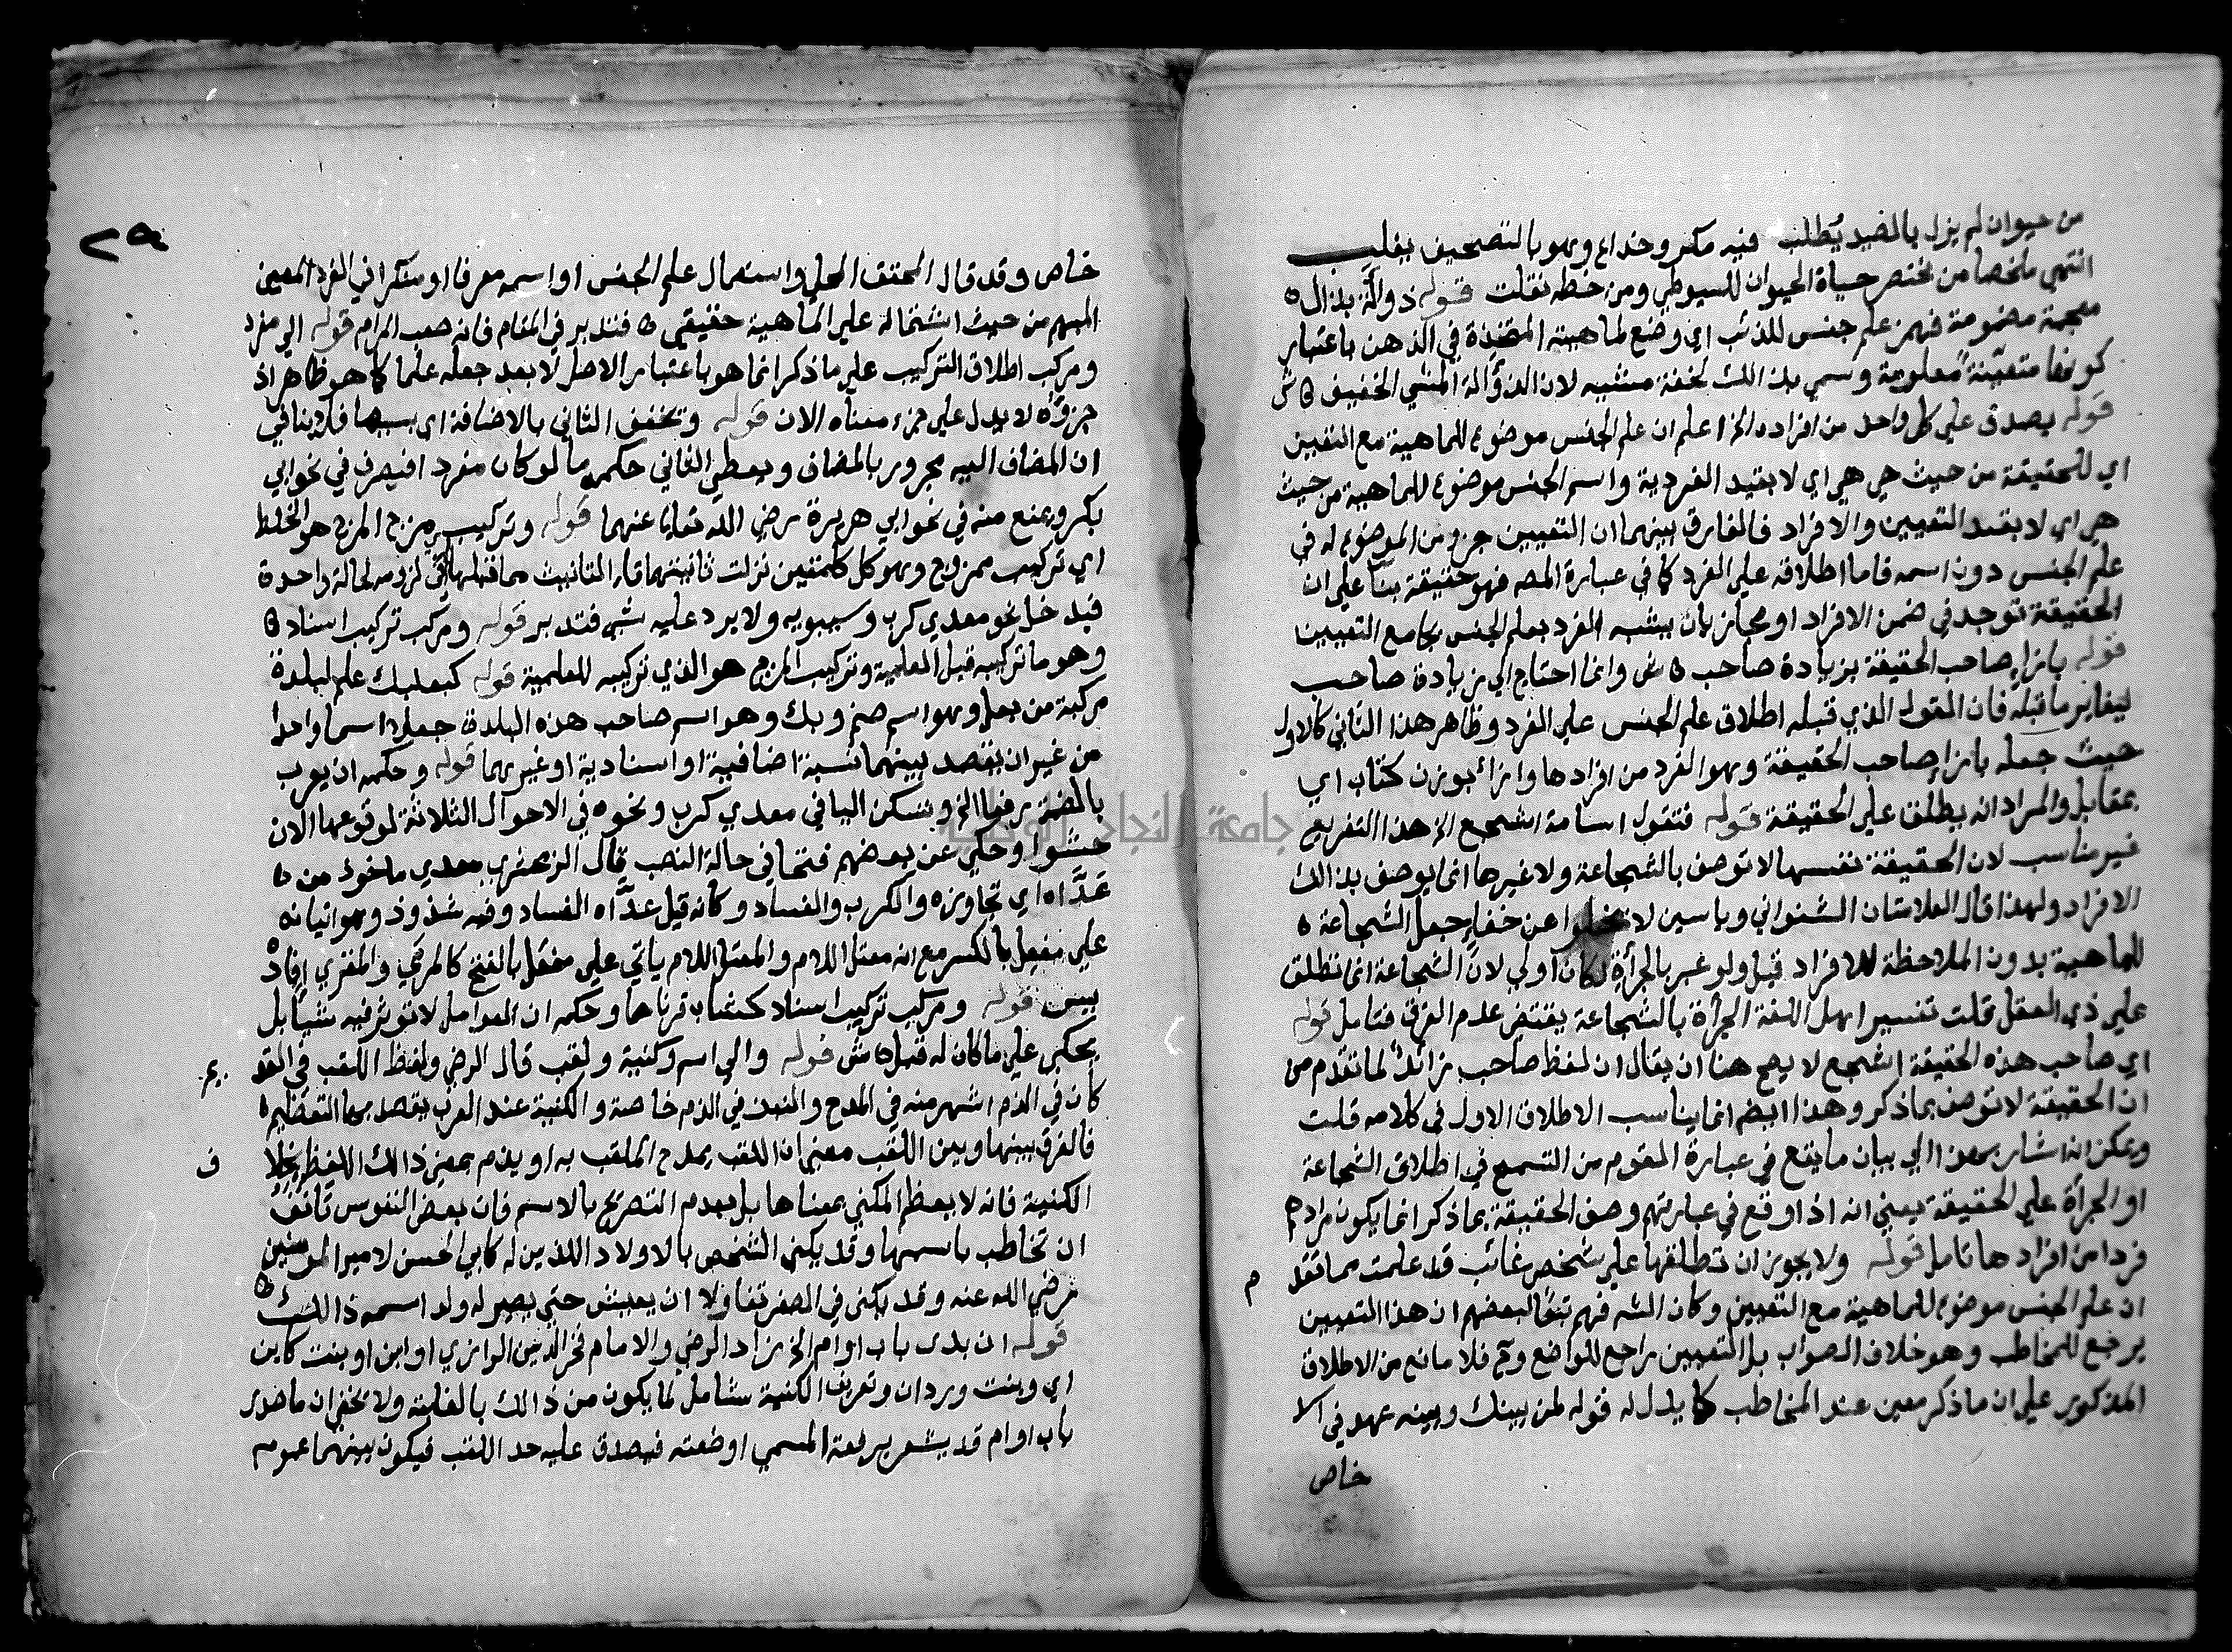 من حيوان لم يزل بالصيد يطلب فيه مكر وخداع وهو بالتصحيف يغلب
انتهي ملخصا من مختصر حياة الحيوان للسيوطي ومن خطه نقلت قوله ذوالة بذال
معجمة مضمومة فهمز علم جنس للذئب اي وضع لماهيته المتخذة في الذهن باعتبار
كونها متعينة معلومة وسمي بذالك لخفة مشيه لان الذؤالة المشي الخفيف ش
قوله يصدق علي كل واحد من افراده الخ اعلم ان علم الجنس موضوع للماهية مع التعيين
اي للحقيقة من حيث هي هي اي لا بقيد الفردية واسم الجنس موضوع للماهية من حيث
هي اي لا بقيد التعيين والافراد فالفارق بينهما ان التعيين جزء من الموضوع له في
علم الجنس دون اسمه فاما اطلاقه علي الفرد كما في عبارة المصه فهو حقيقة بنا علي ان
الحقيقة توجد في ضمن الافراد او مجاز بان يشبه الفرد بعلم الجنس بجامع التعيين
قوله بازا صاحب الحقيقة بزيادة صاحب ش وانما احتاج الي زيادة صاحب
ليغاير ما قبله فان المقول الذي قبله اطلاق علم الجنس علي الفرد وظاهر هذا الثاني كالاول
حيث جعله بازاء صاحب الحقيقة وهو الفرد من افرادها وازائ بوزن كتاب اي
بمقابل والمراد انه يطلق علي الحقيقة قوله فتقول اسامة اشجع الخ هذا التفريع
غير مناسب لان الحقيقة نفسها لا توصف بالشجاعة ولا غيرها انما يوصف بذالك
الافراد ولهذا قال العلامتان الشنواني وياسين لا تخلوا عن خفاء جعل الشجاعة
للماهية بدون الملاحظة للافراد قيل ولو عبر بالجرأة لكان اولي لان الشجاعة انما تطلق
علي ذي العقل قلت تفسير اهل اللغة الجرأة بالشجاعة يقتضي عدم الفرق فتامل قوله
اي صاحب هذه الحقيقة اشجع لا يصح هنا ان يقال ان لفظ صاحب زائد لما تقدم من
ان الحقيقة لا توصف بما ذكر وهذا ايضا انما يناسب الاطلاق الاول في كلامه قلت
ويمكن انه اشار بهذا الي بيان ما يقع في عبارة القوم من التسمح في اطلاق الشجاعة
او الجرأة علي الحقيقة يعني انه اذا وقع في عبارتهم وصف الحقيقة بما ذكر انما يكون مرادهم
فردا من افرادها تامل قوله ولا يجوز ان تطلقها علي شخص غائب قد علمت مما تقدم
ان علم الجنس موضوع للماهية مع التعيين وكان الشه فهم تبعا لبعضهم ان هذا التعيين
يرجع للمخاطب وهو خلاف الصواب بل التعيين راجع للواضع وح فلا مانع من الاطلاق
المذكور علي ان ما ذكر معين عند المخاطب كما يدل له قوله لمن بينك وبينه عهد في
خاص
٢٩
خاص وقد قال المحقق المحلي واستعمال علم الجنس او اسمه معرفا او منكرا في الفرد المعين
المبهم من حيث اشتماله علي الماهية حقيقي فتدبر في المقام فانه صعب المرام قوله الي مفرد
ومركب اطلاق التركيب علي ما ذكر انما هو باعتبار الاصل لا بعد جعله علما كما هو ظاهر اذ
جزؤه لا يدل علي جزء معناه الان قوله وتخفض الثاني بالاضافة اي بسببها فلا ينافي
ان المضاف اليه مجرور بالمضاف ويعطي الثاني حكمه ما لو كان مفرد افيصرف في نحو ابي
بكر ويمنع منه في نحو ابي هريرة رضي الله تعالي عنهما قوله وتركيب مزج المزج هو الخلط
اي تركيب ممزوج وهو كل كلمتين نزلت ثانيتهما تاء التانيث مما قبلها في لزومه لحالة واحدة
فيدخل نحو معدي كرب وسيبويه ولا يرد عليه شي فتدبر قوله ومركب تركيب اسناد
وهو ما تركيبه قبل العلمية وتركيب المزج هو الذي تركيبه للعلمية قوله كبعلبك علم لبلدة
مركبة من بعل وهو اسم صنم وبك وهو اسم صاحب هذه البلدة جعلا اسما واحدا
من غير ان يقصد بينهما نسبة اضافية او اسنادية او غيرهما قوله وحكمه ان يعرب
بالضمة رفعا الخ وتسكن اليا في معدي كرب ونحوه في الاحوال الثلاثة لوقوعها الان
حشوا وحكي عن بعضهم فتحها في حالة النصب قال الزمخشري معدي ماخوذ من
عداه اي تجاوزه والكرب والفساد وكانه قيل عداه الفساد وفيه شذوذ وهو اتيانه
علي مفعل بالكسر مع انه معتل اللام والمعتل اللام ياتي علي مفعل بالفتح كالمرمي والمغزي افاده
يس قوله ومركب تركيب اسناد كشاب قرناها وحكمه ان العوامل لا تؤثر فيه شيا بل
يحكي علي ما كان له قبل ش قوله والي اسم وكنية ولقب قال الرضي ولفظ اللقب في القديم
كان في الذم اشهر منه في المدح والنبذ في الذم خاصة والكنية عند العرب يقصد بها التعظيم
فالفرق بينها وبين اللقب معني ان اللقب يمدح الملقب به او يذم بمعني ذالك اللفظ بخلاف
الكنية فانه لا يعظم المكني بمعناها بل بعدم التصريح بالاسم فان بعض النفوس تانف
ان تخاطب باسمها وقد يكني الشخص بالاولاد الذين له كابي الحسن لامير المومنين
رضي الله عنه وقد يكني في الصغر تفاولا ان يعيش حتي يصير له ولد اسمه ذالك
قوله ان بدي باب او ام الخ زاد الرضي والامام فخر الدين الرازي او ابن او بنت كابن
اي وبنت وردان وتعريف الكنية شامل لما يكون من ذالك بالغلبة ولا يخفي ان ما صدر
باب او ام قد يشعر برفعة المسمي او ضعته فيصدق عليه حد اللقب فيكون بينهما عموم
جامعة النجاح الوطنية